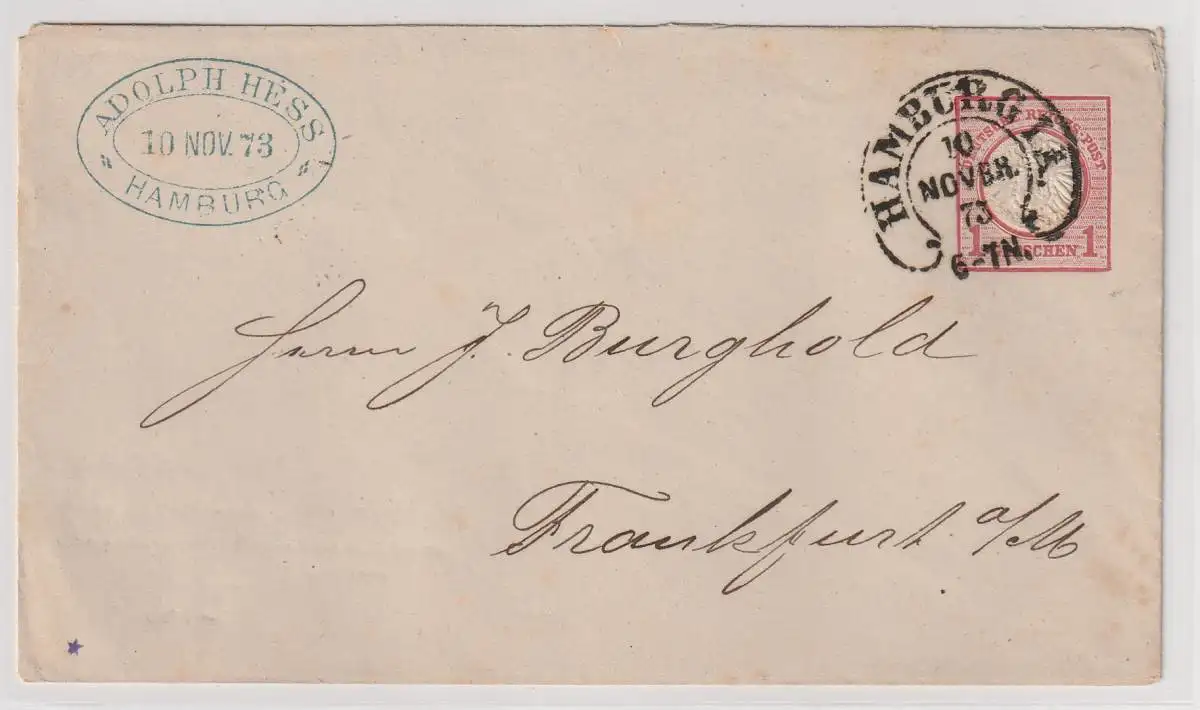 ADOLPH HESS
10 NOV. 73
HAMBURG
HAMBURG I.A.
10
NOVBR.
73
6-7N.
DEUTSCHE REICHS-POST
1 GROSCHEN 1
Herrn J. Burghold
Frankfurt a/M